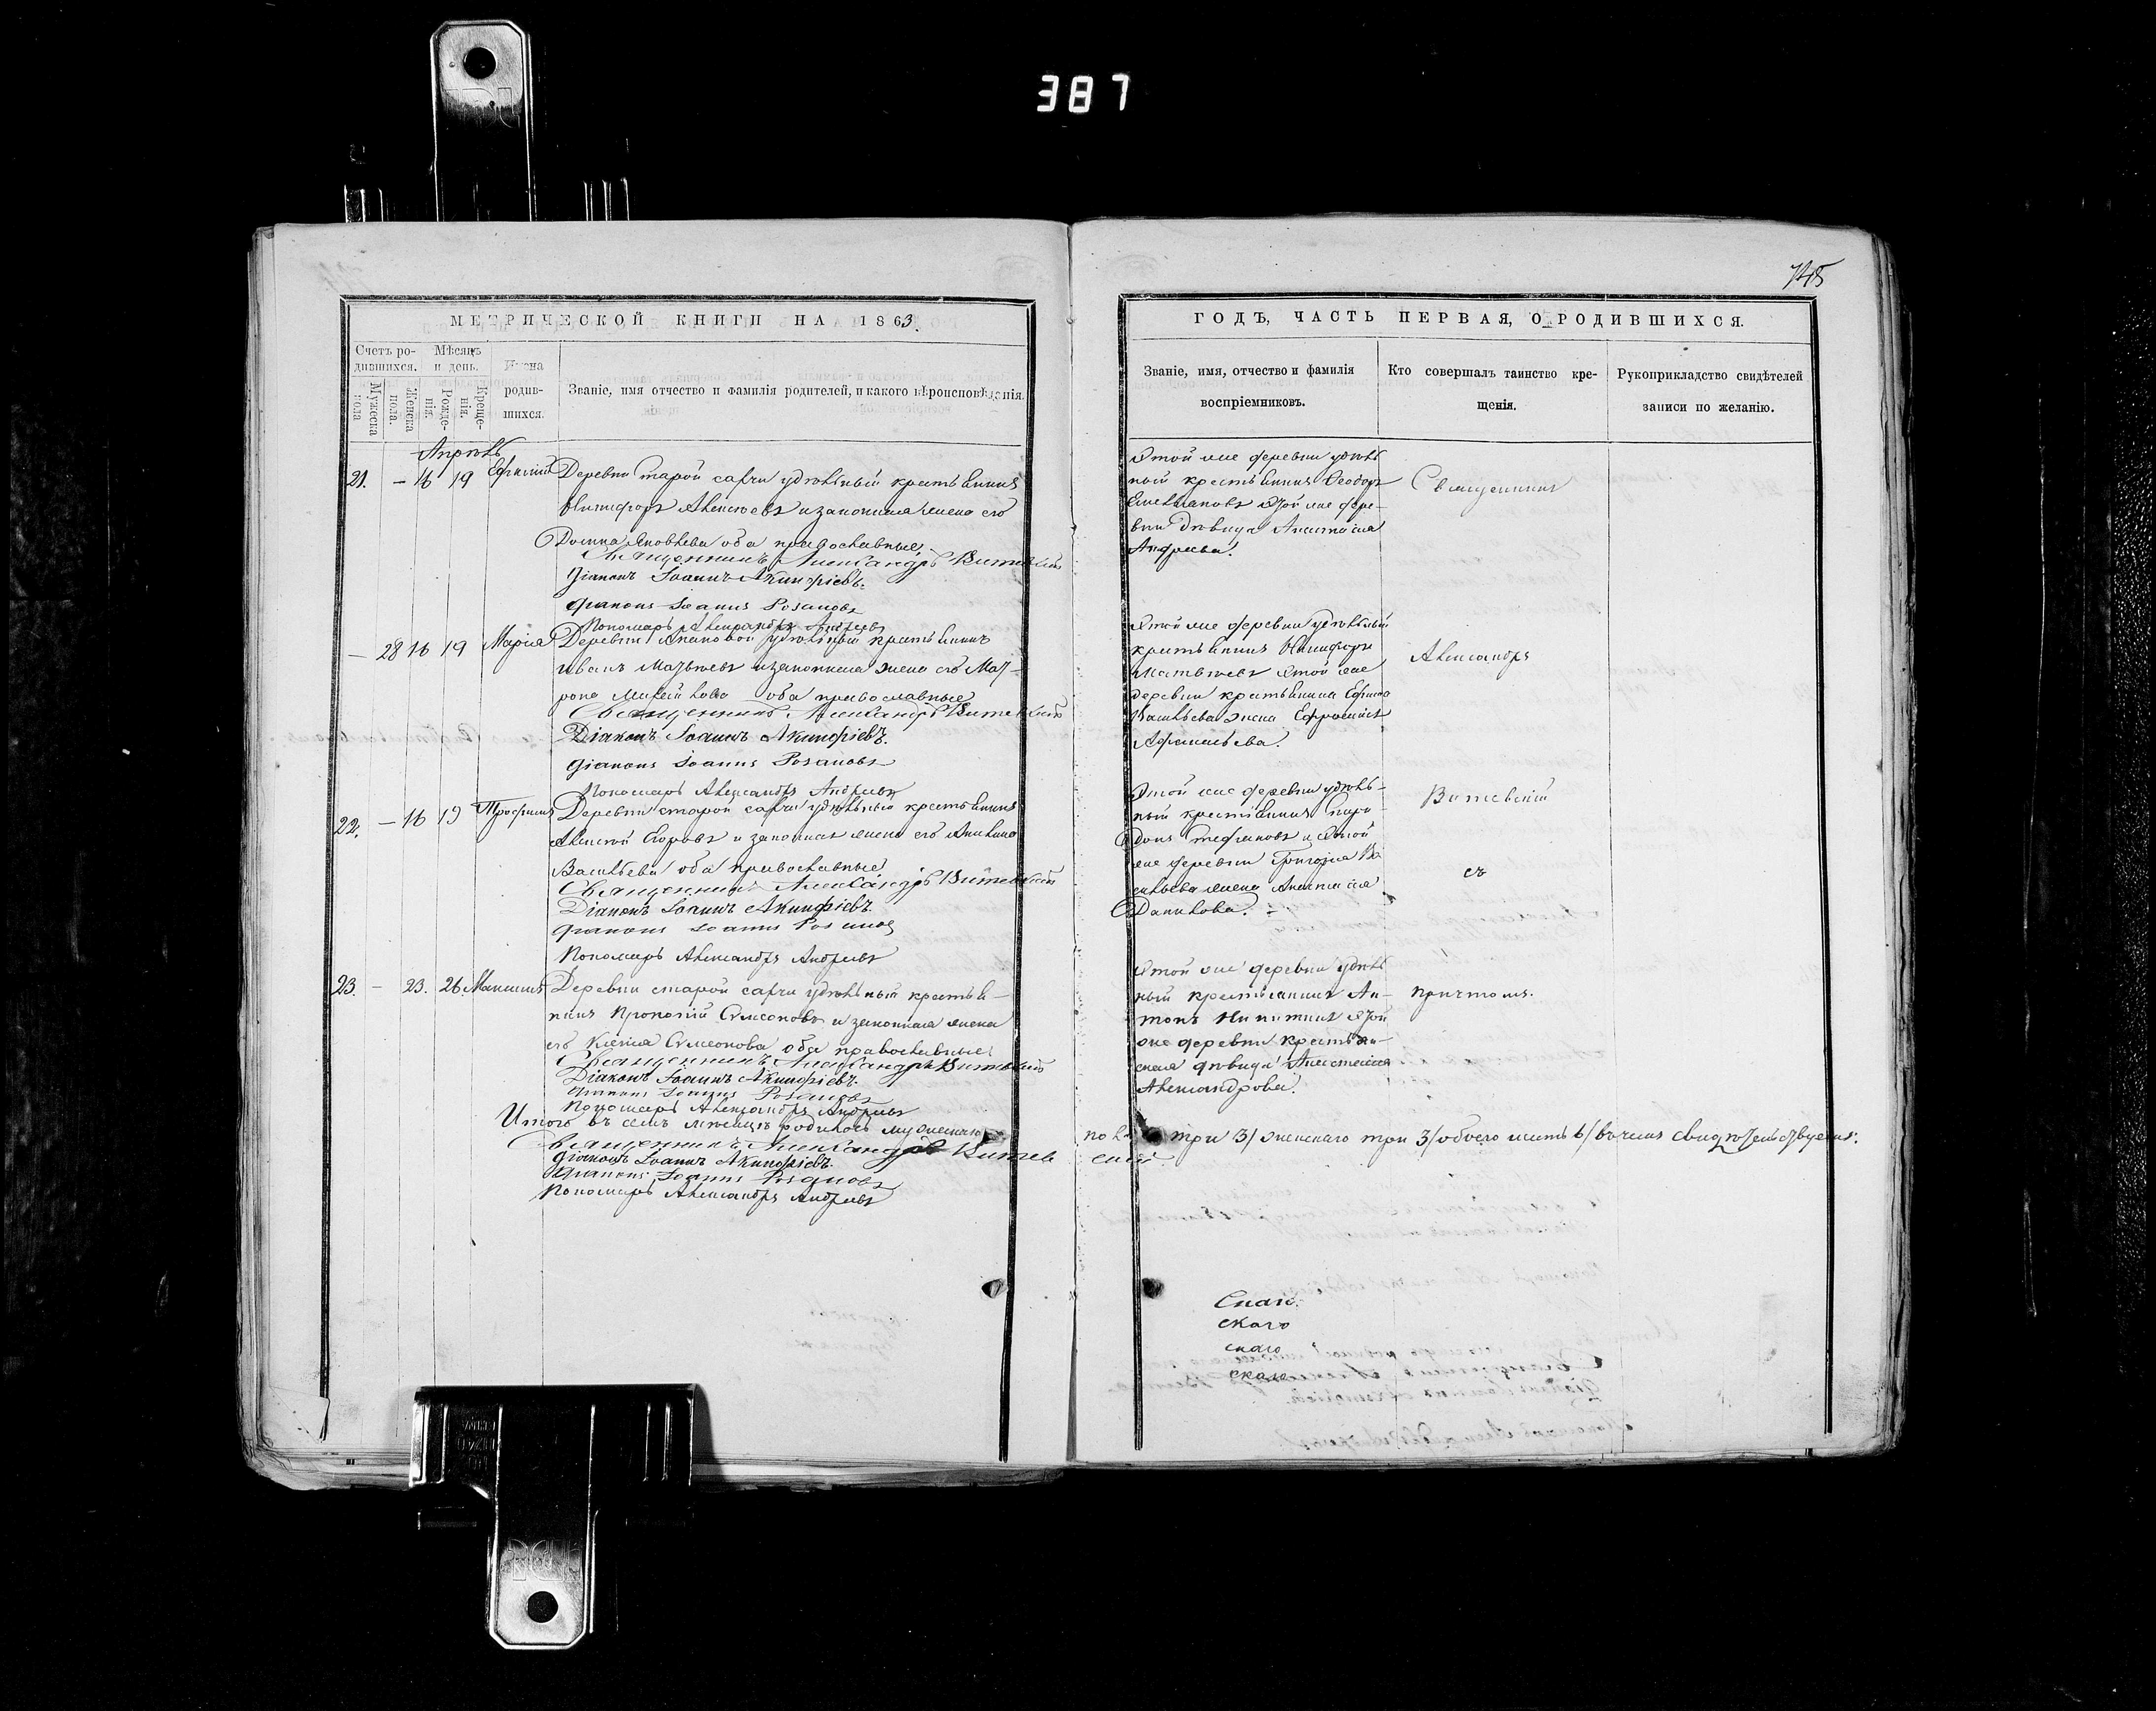 387
745
МЕТРИЧЕСКОЙ КНИГИ НА 1863.
Счетъ ро-
дившихся.
Мѣсяцъ
и день.
Имена
родив-
шихся.
Мужеска
пола
Женска
пола.
Рожде-
нія.
Креще-
нія.
Званіе, имя отчество и фамилія родителей, и какого вѣроисповѣданія.
Апрѣль
21. — 16 19
Деревни старой сахчи удѣльный крестьянинъ
Никифоръ Алексѣевъ и законная жена его
Домна Яковлева оба православные
Священникъ Александръ Витевскій
Діаконъ Іоаннъ Акинфіевъ.
Діаконъ Іоаннъ Розановъ
Пономарь Александръ Андреевъ
— 28 16 19 Марія
Деревни удѣльный крестьянинъ
Иванъ Матвѣевъ и законная жена его Мат-
рона Михайлова оба православные
Священникъ Александръ Витевскій
Діаконъ Іоаннъ Акинфіевъ.
Діаконъ Іоаннъ Розановъ
Пономарь Александръ Андреевъ
22. — 16 19 Трофимъ
Деревни старой сахчи удѣльный крестьянинъ
Алексѣй Егоровъ и законная жена его Акилина
Васильева оба православные
Священникъ Александръ Витевскій
Діаконъ Іоаннъ Акинфіевъ.
Діаконъ Іоаннъ Розановъ
Пономарь Александръ Андреевъ
23. — 23. 26. Максимъ
Деревни старой сахчи удѣльный крестья-
нинъ Прокопій Симеоновъ и законная жена
его Ксенія Симеонова оба православные
Священникъ Александръ Витевскій
Діаконъ Іоаннъ Акинфіевъ.
Діаконъ Іоаннъ Розановъ
Пономарь Александръ Андреевъ
Итого въ семъ мѣсяцѣ родилось мужескаго
Священникъ Александръ Витев
Діаконъ Іоаннъ Акинфіевъ.
Діаконъ Іоаннъ Розановъ
Пономарь Александръ Андреевъ
ГОДЪ, ЧАСТЬ ПЕРВАЯ, О РОДИВШИХСЯ.
Званіе, имя, отчество и фамилія
воспріемниковъ.
Кто совершалъ таинство кре-
щенія.
Рукоприкладство свидѣтелей
записи по желанію.
Этой же деревни удѣль
ный крестьянинъ Феодоръ
Емельяновъ этой же дере-
вни дѣвица Анастасія
Андреева.
Священникъ
Этой же деревни удѣльный
крестьянинъ Никифоръ
Матвѣевъ этой же
деревни крестьянина Ефима
Васильева жена Ефросинія
Афанасьева.
Александръ
Этой же деревни удѣль-
ный крестьянинъ
Стефановъ и этой
же деревни Григорія Ва
сильева жена Анастасія
Данилова.
Витевскій
съ
Этой же деревни удѣль
ный крестьянинъ Ан-
тонъ Никитинъ этой
же деревни крестьян-
ская дѣвица Анастасія
Александрова.
причтомъ.
пола три 3/ женскаго три 3/ обоего шесть 6/ въ чемъ свидѣтельствуемъ.
скій
Спас-
скаго
скаго
скаго